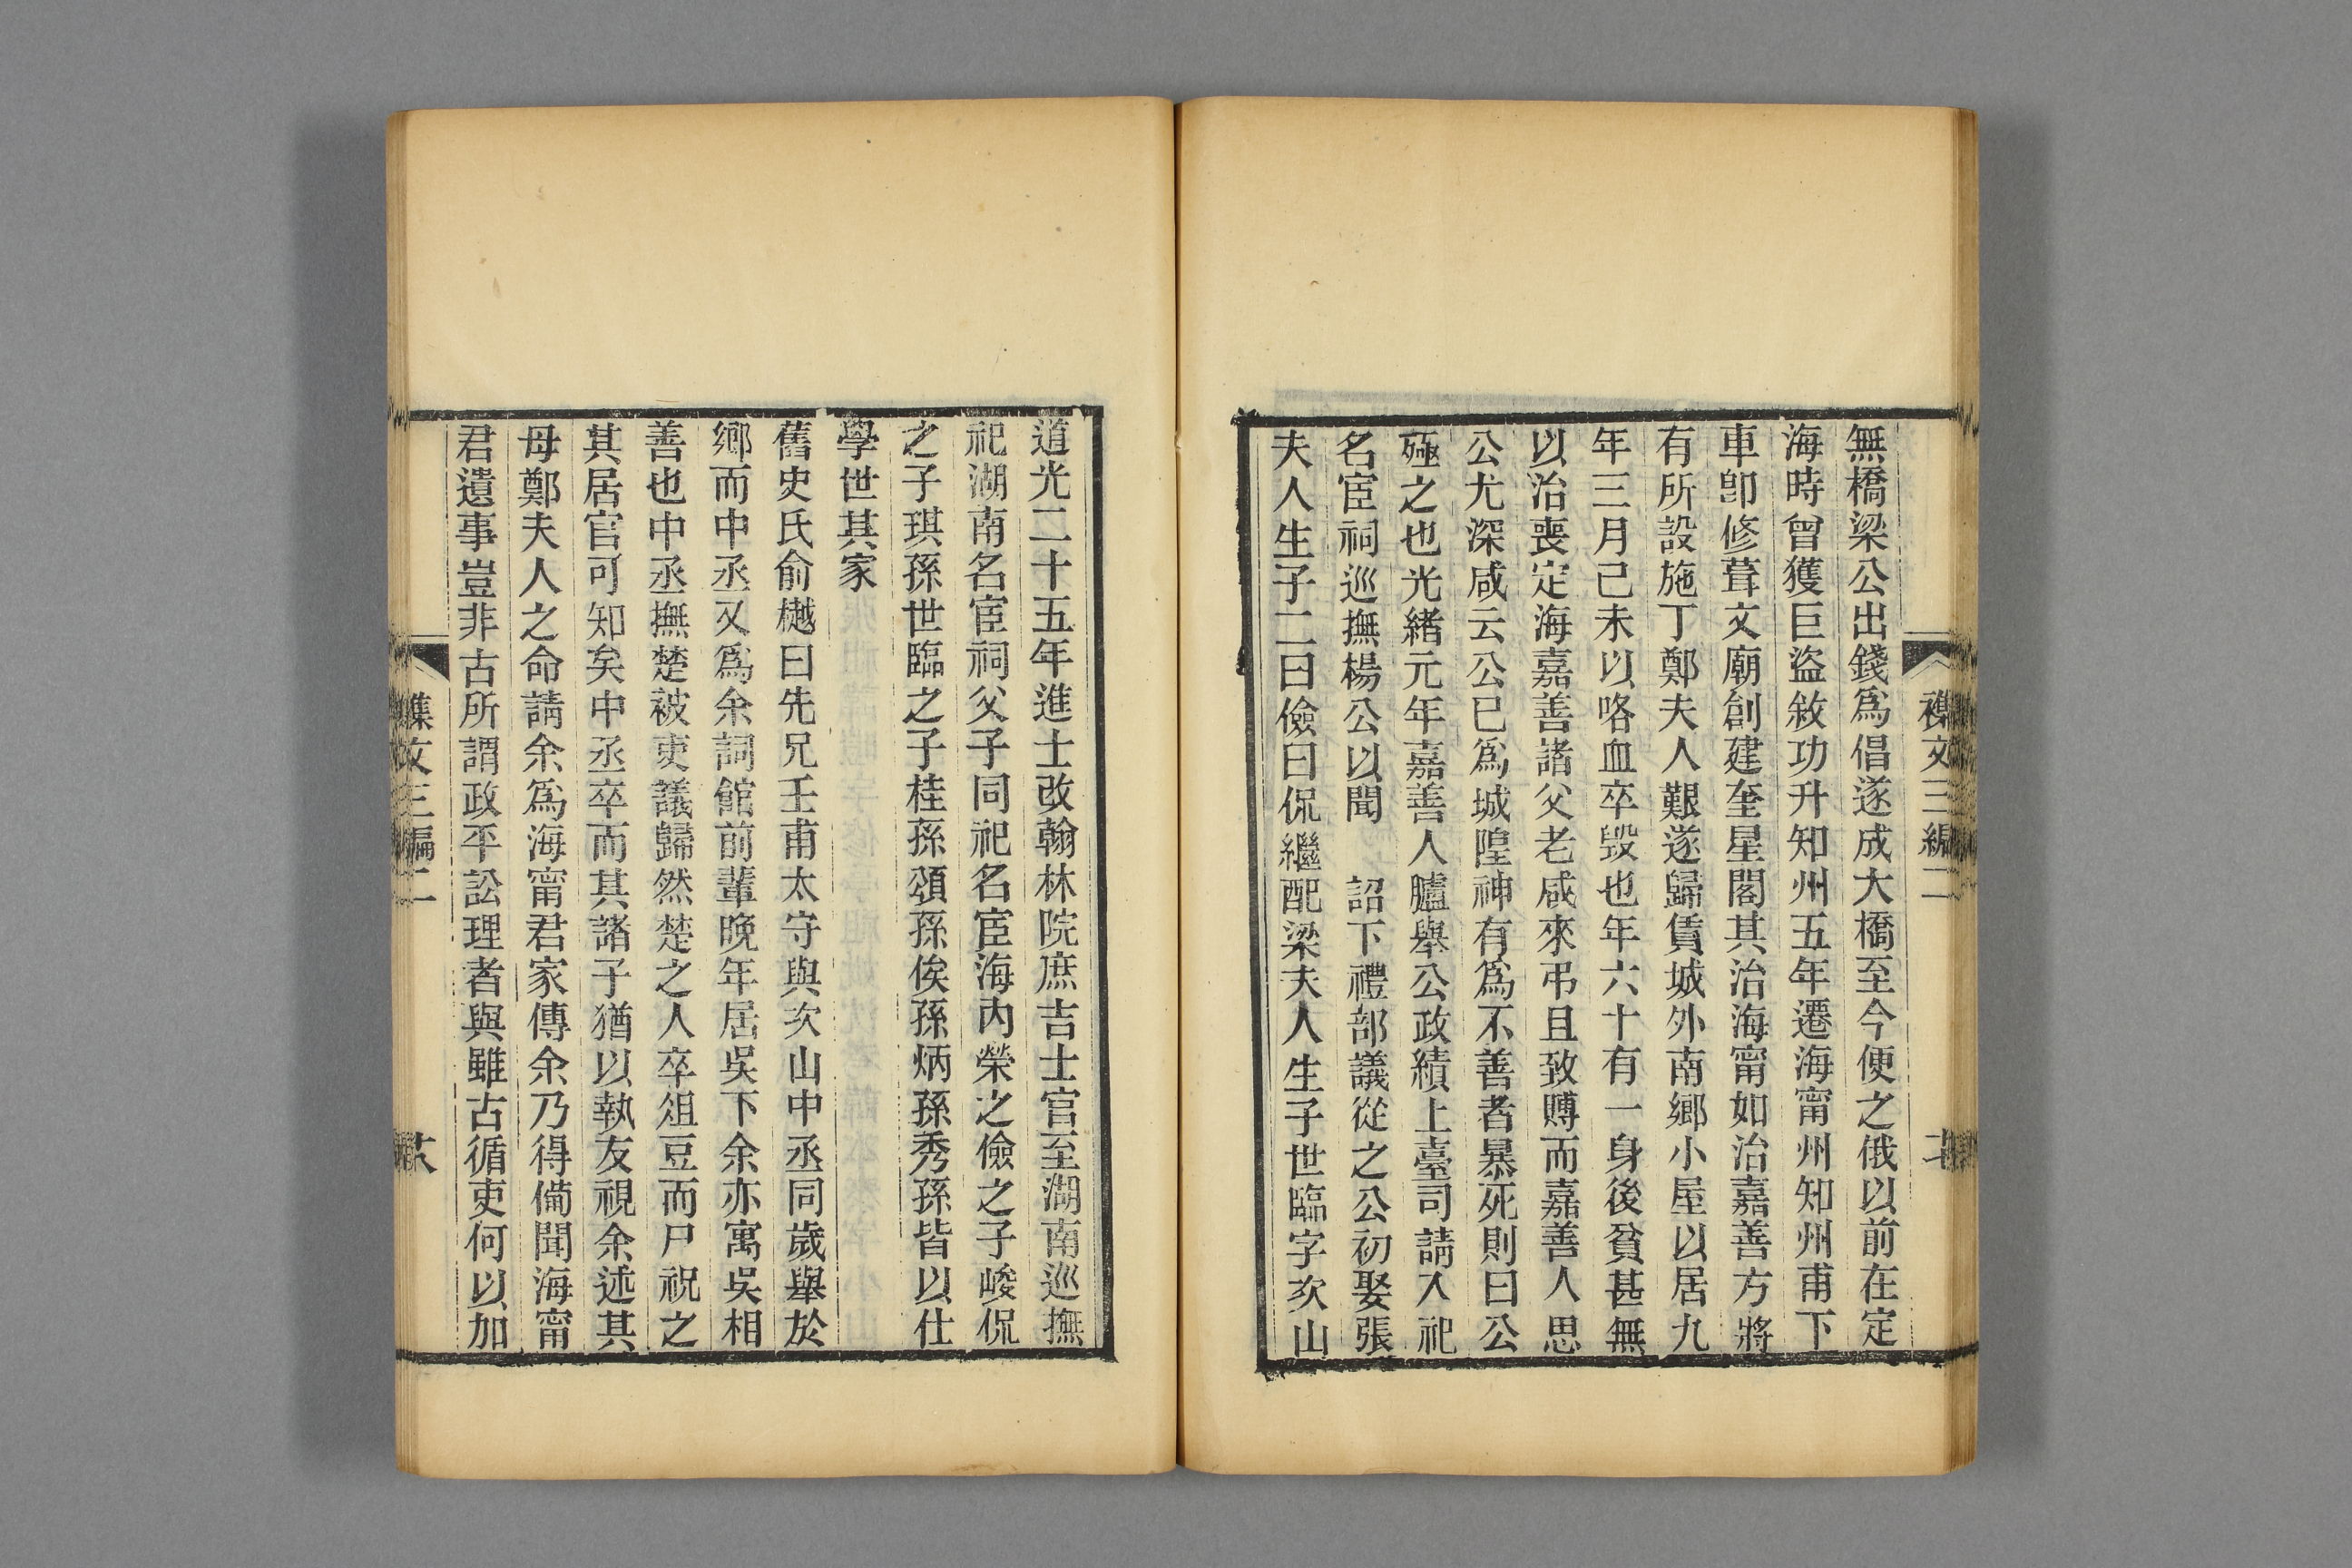 襍文三編二
無橋梁公出錢爲倡遂成大橋至今便之俄以前在定
海時曾獲巨盜敘功升知州五年遷海甯州知州甫下
車卽修葺文廟創建奎星閣其治海甯如治嘉善方將
有所設施丁鄭夫人艱遂歸賃城外南鄉小屋以居九
年三月己未以咯血卒毀也年六十有一身後貧甚無
以治喪定海嘉善諸父老咸來弔且致賻而嘉善人思
公尤深咸云公已爲城隍神有爲不善者暴死則曰公
殛之也光緒元年嘉善人臚舉公政績上臺司請入祀
名宦祠巡撫楊公以聞　詔下禮部議從之公初娶張
夫人生子二曰儉曰侃繼配梁夫人生子世臨字次山
道光二十五年進士改翰林院庶吉士官至湖南巡撫
祀湖南名宦祠父子同祀名宦海內榮之儉之子峻侃
之子琪孫世臨之子桂孫頌孫俟孫炳孫秀孫皆以仕
學世其家
舊史氏俞樾曰先兄壬甫太守與次山中丞同歲舉於
鄉而中丞又爲余詞館前輩晚年居吳下余亦寓吳相
善也中丞撫楚被吏議歸然楚之人卒俎豆而尸祝之
其居官可知矣中丞卒而其諸子猶以執友視余述其
母鄭夫人之命請余爲海甯君家傳余乃得備聞海甯
君遺事豈非古所謂政平訟理者與雖古循吏何以加
襍文三編二